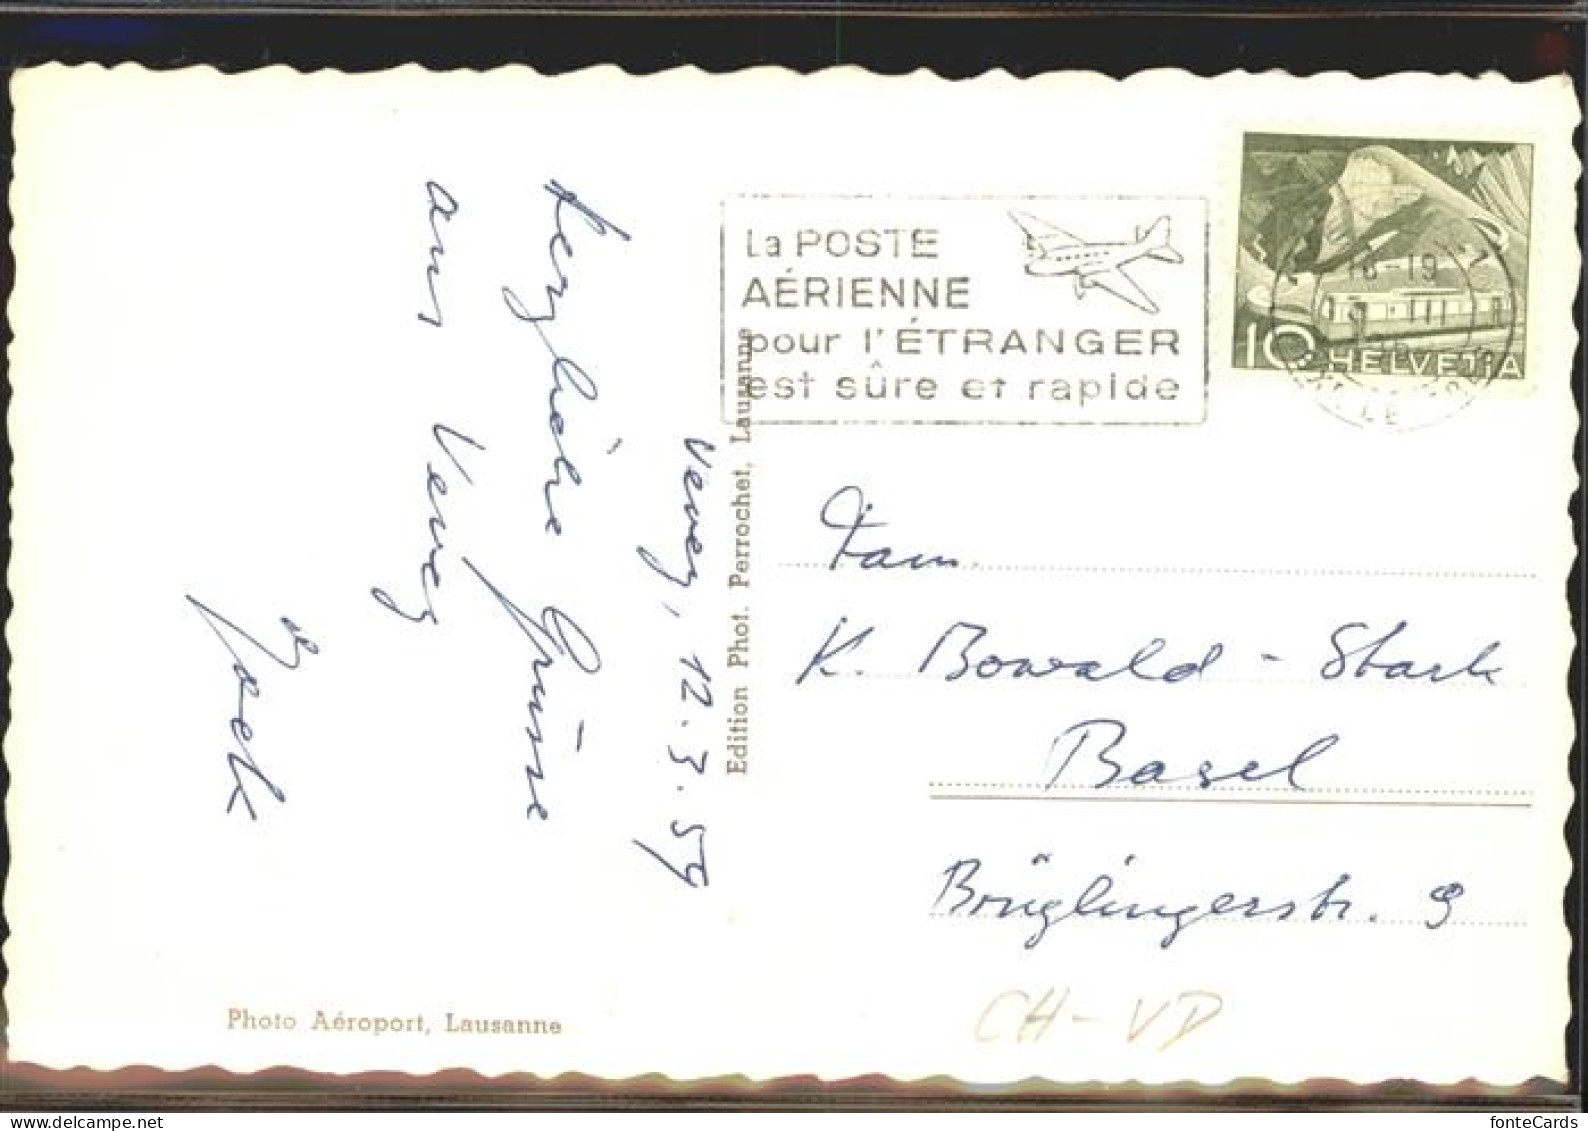 La POSTE
AÉRIENNE
pour l'ÉTRANGER
est sûre et rapide
18-19
10 HELVETIA
Vevey, 12.3.59
Herzliche Grüsse
aus Vevey
Edition Phot. Perrochet, Lausanne
Fam.
K. Bowald-Stark
Basel
Brüglingerstr. 9
Photo Aéroport, Lausanne
CH-VD
www.delcampe.net
fonteCards